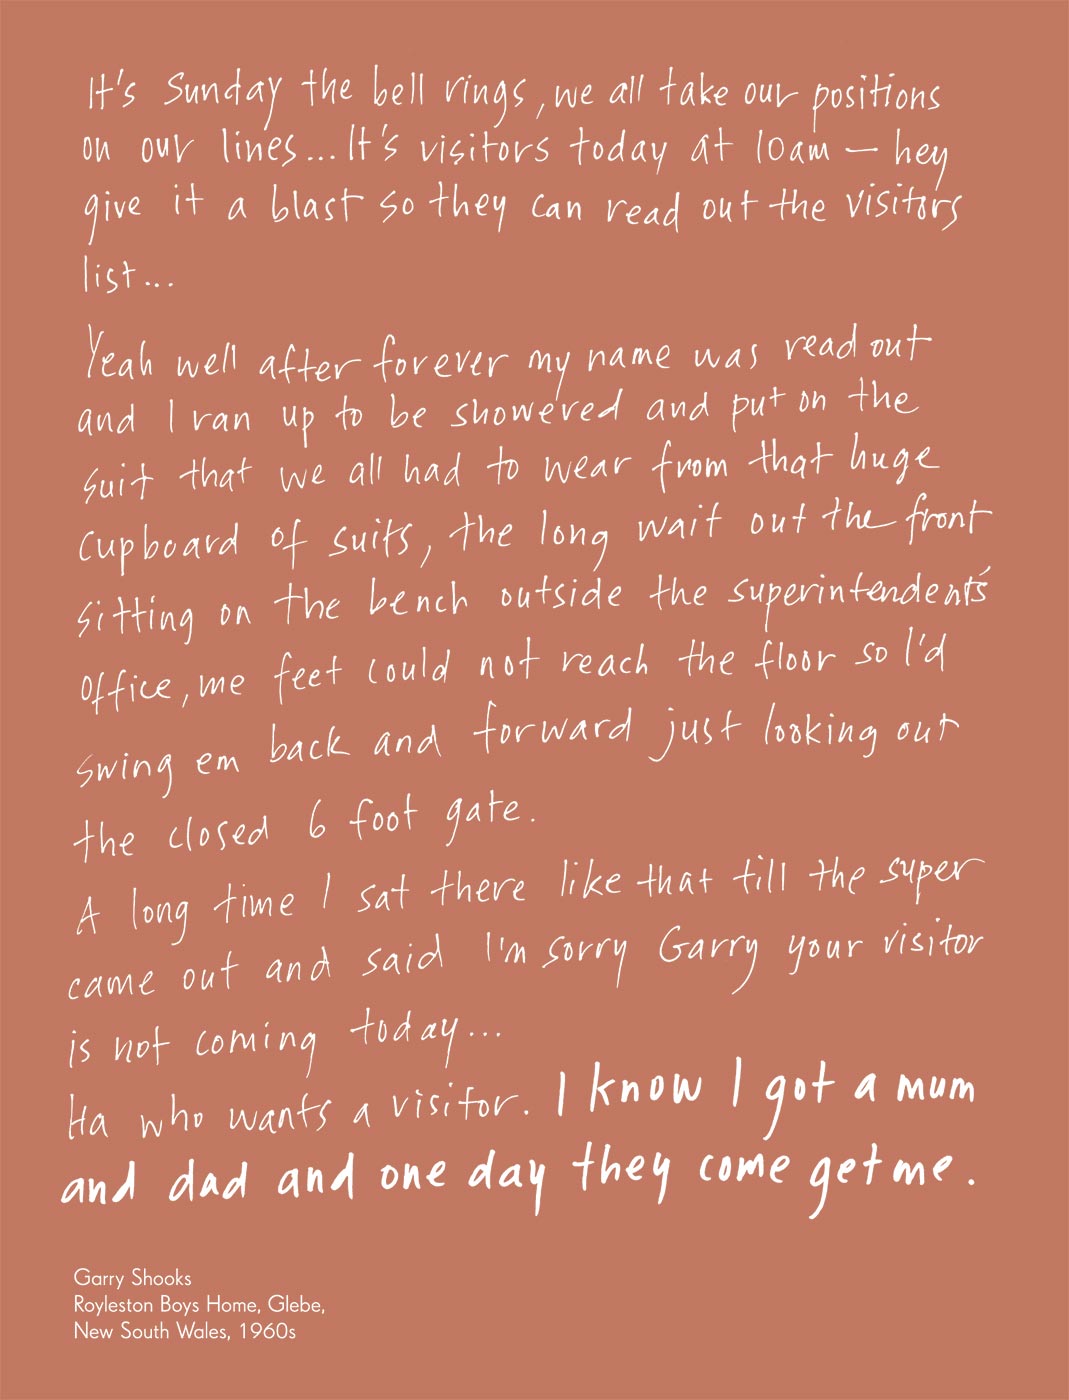 It's Sunday the bell rings, we all take our positions
on our lines... It's visitors today at 10am – hey
give it a blast so they can read out the visitors
list...
Yeah well after forever my name was read out
and I ran up to be showered and put on the
suit that we all had to wear from that huge
cupboard of suits, the long wait out the front
sitting on the bench outside the superintendent's
office, me feet could not reach the floor so I'd
swing em back and forward just looking out
the closed 6 foot gate.
A long time I sat there like that till the super
came out and said I'm sorry Garry your visitor
is not coming today...
Ha who wants a visitor. I know I got a mum
and dad and one day they come get me.
Garry Shooks
Royleston Boys Home, Glebe,
New South Wales, 1960s